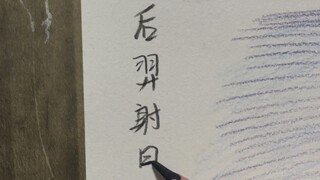 后羿射日